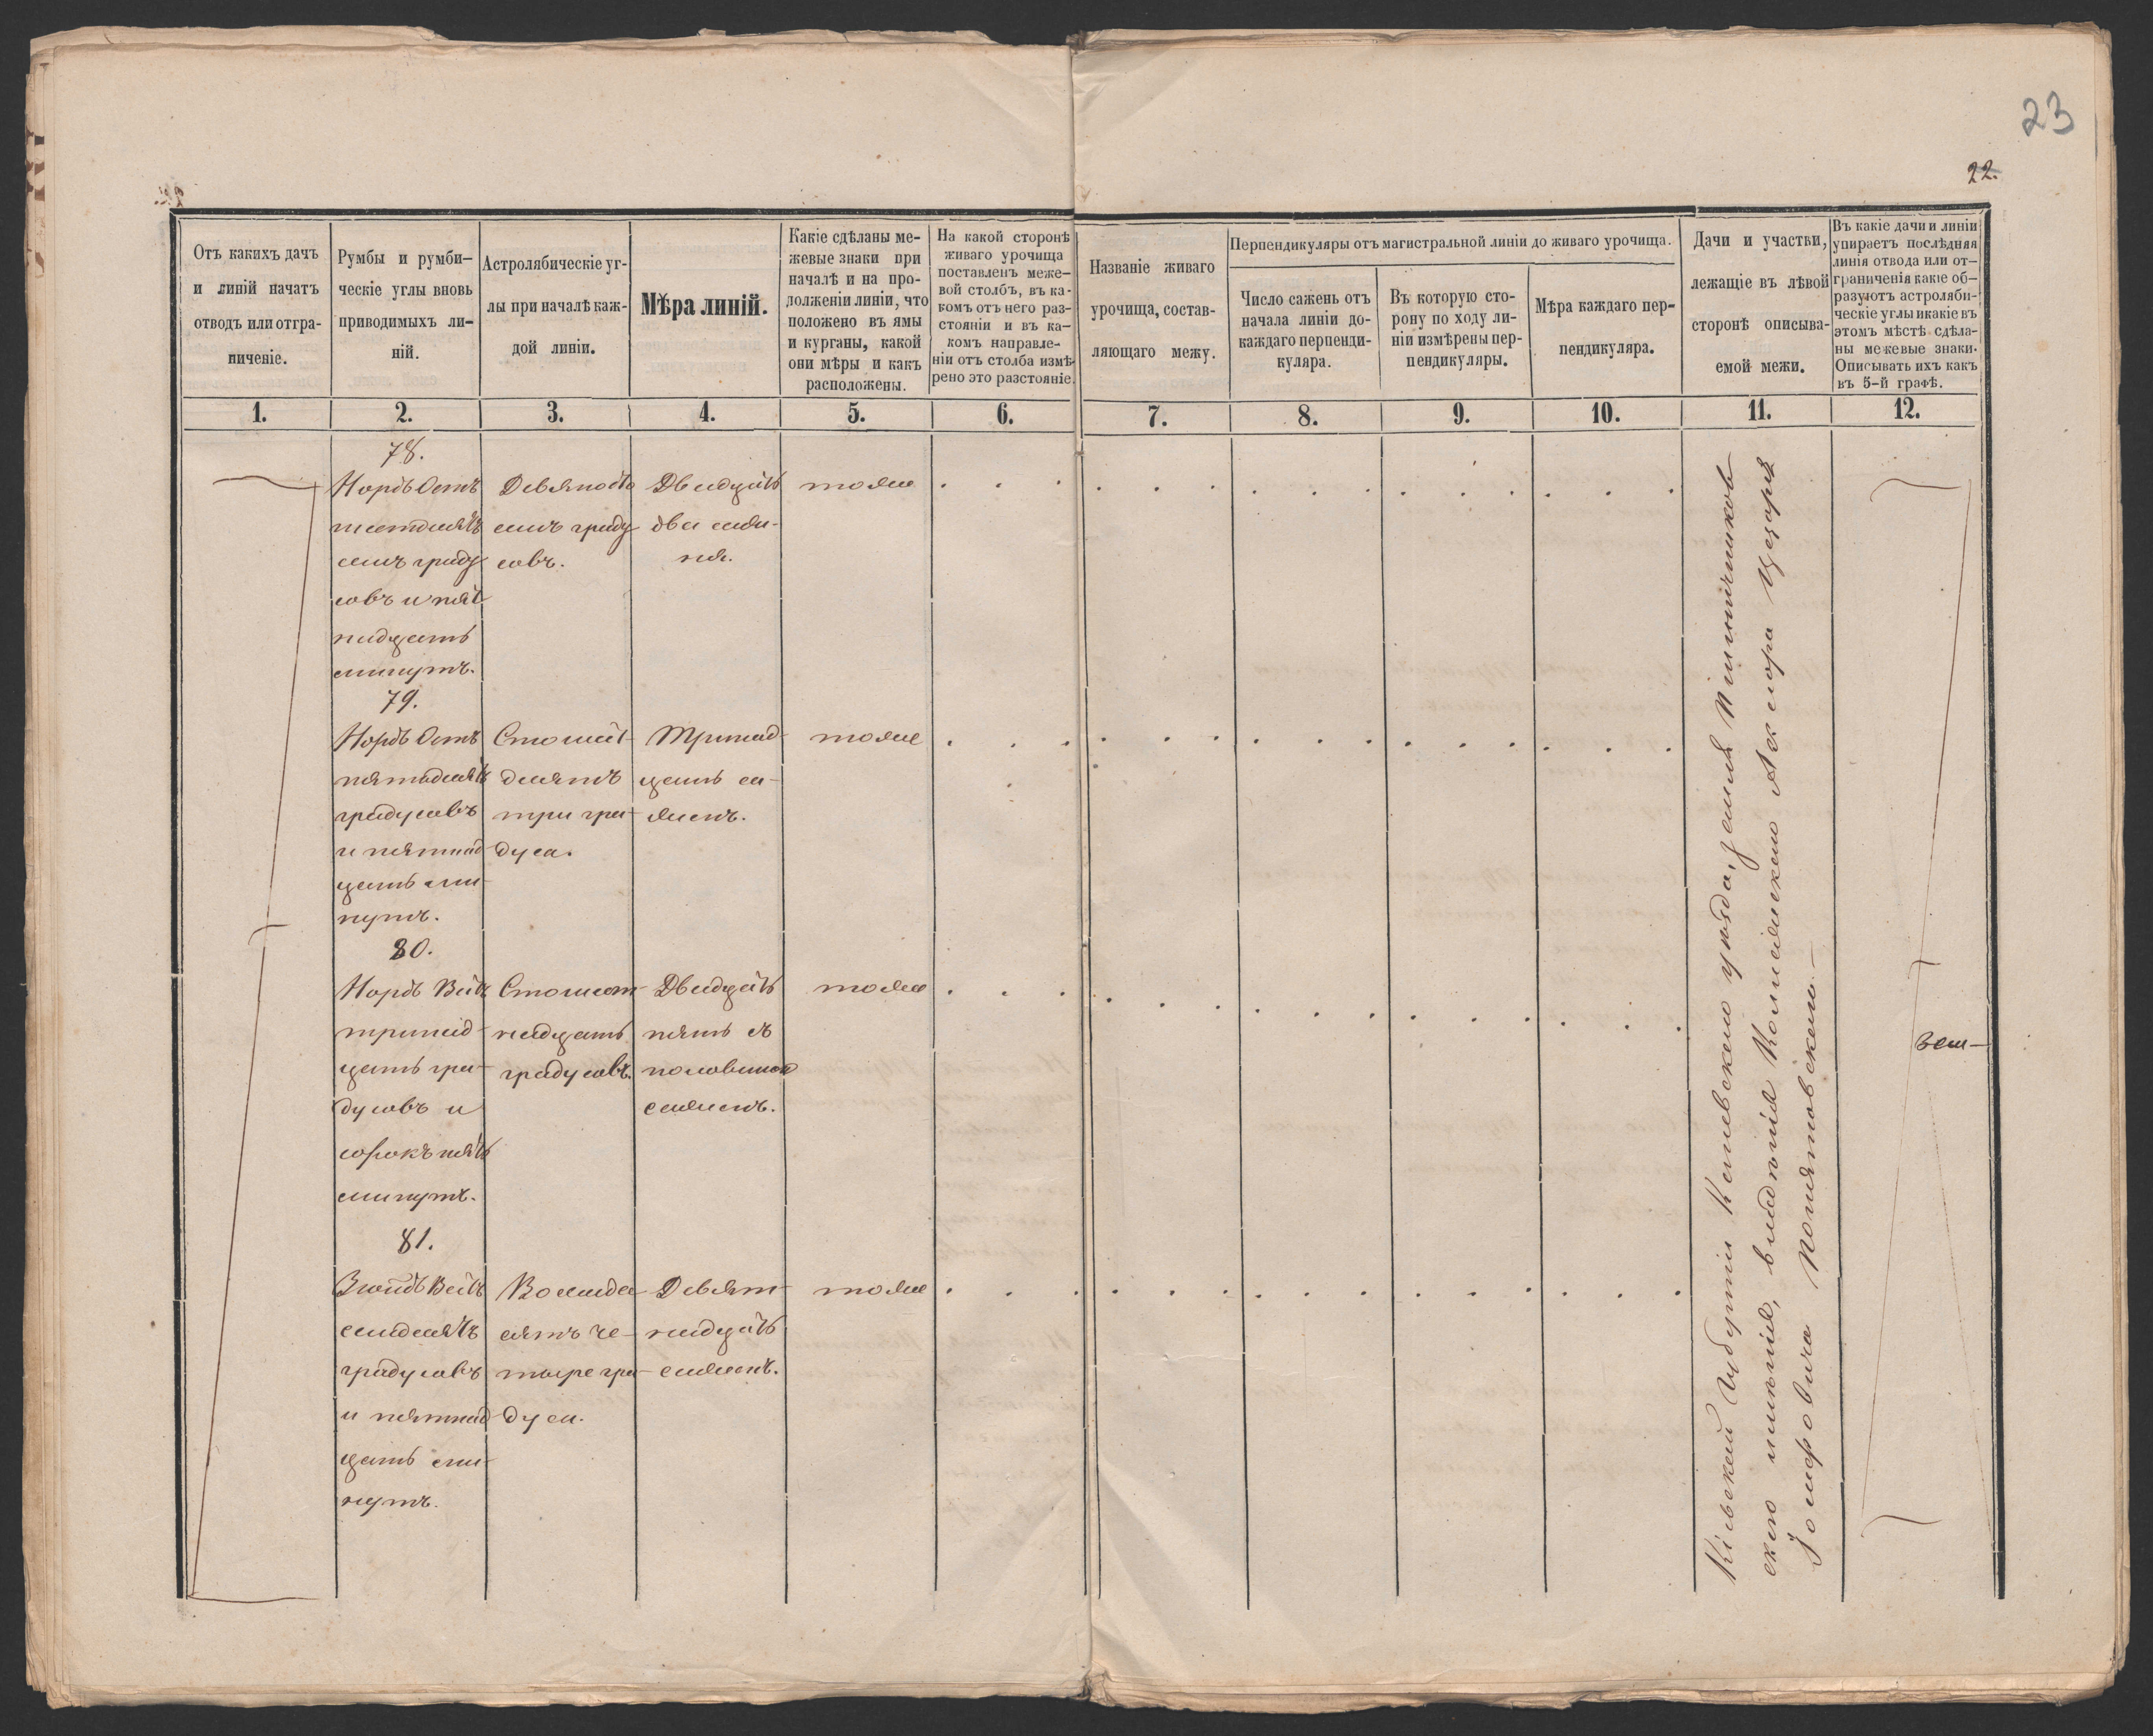 23
22.
Отъ какихъ дачъ
и линій начатъ
отводъ или отгра-
ниченіе.
Румбы и румби-
ческіе углы вновь
приводимыхъ ли-
ній.
Астролябическіе уг-
лы при началѣ каж-
дой линіи.
Мѣра линій.
Какіе сдѣланы ме-
жевые знаки при
началѣ и на про-
долженіи линіи, что
положено въ ямы
и курганы, какой
они мѣры и какъ
расположены.
На какой сторонѣ
живаго урочища
поставленъ меже-
вой столбъ, въ ка-
комъ отъ него раз-
стояніи и въ ка-
комъ направле-
ніи отъ столба измѣ-
рено это разстояніе.
Названіе живаго
урочища, состав-
ляющаго межу.
Перпендикуляры отъ магистральной линіи до живаго урочища.
Число сажень отъ
начала линіи до-
каждаго перпенди-
куляра.
Въ которую сто-
рону по ходу ли-
ніи измѣрены пер-
пендикуляры.
Мѣра каждаго пер-
пендикуляра.
Дачи и участки,
лежащіе въ лѣвой
сторонѣ описыва-
емой межи.
Въ какіе дачи и линіи
упираетъ послѣдняя
линія отвода или от-
граниченія какіе об-
разуютъ астроляби-
ческіе углы и какіе въ
этомъ мѣстѣ сдѣла-
ны межевые знаки.
Описывать ихъ какъ
въ 5-й графѣ.
1. 2. 3. 4. 5. 6. 7. 8. 9. 10. 11. 12.
78.
Нордъ Остъ
шестдесятъ
семь граду
совъ и пят
надцать
минутъ.
Девяносто
семь граду
совъ.
Двадцать
два саже-
ня.
тоже
79.
Нордъ Остъ
пятьдесятъ
градусовъ
и пятнад
цать ми-
нутъ.
Стошест-
десятъ
три гра-
дуса.
Тринад-
цать са-
жень.
тоже
80.
Нордъ Вестъ
тринад-
цать гра-
дусовъ и
сорокъ пять
минутъ.
Стошест-
надцать
градусовъ.
Двадцать
пять съ
половиной
сажень.
тоже
81.
Зюйдъ Вестъ
семдесятъ
градусовъ
и пятнад
цать ми-
нутъ.
Восемьде-
сятъ че-
тыре гра-
дуса.
Девят-
надцать
сажень.
тоже
Кіевской Губерніи Каневскаго уѣзда, земля
скаго имѣнія, владѣнія Цезаря
Понятовскаго.